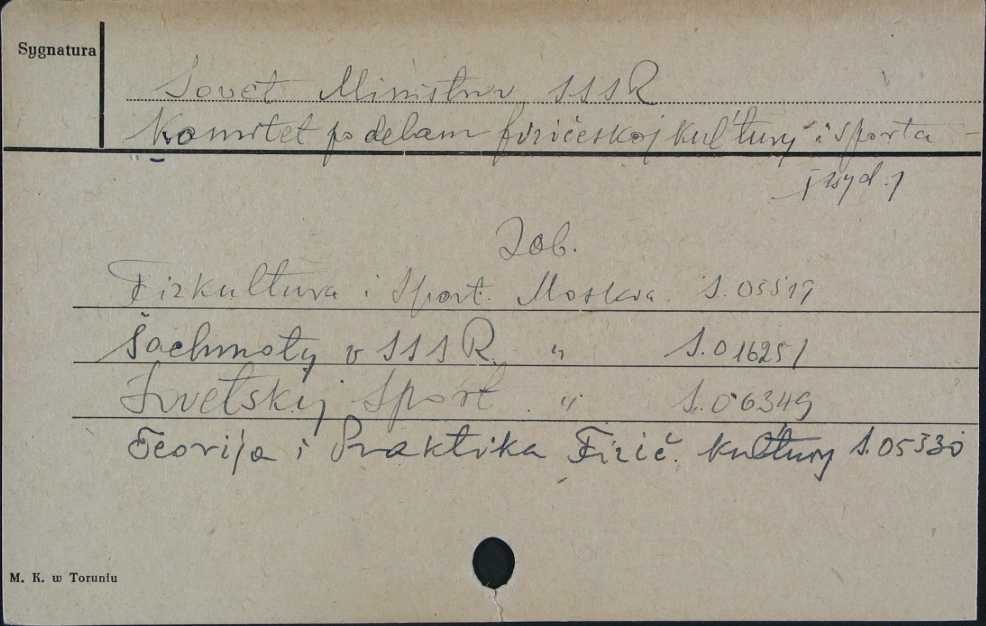 Sygnatura
Sovet Ministrov SSSR
Komitet po delam fizičeskoj kul'tury i sporta
[wyd.]
Zob.
Fizkultura i Sport. Moskva. S.05519
Šachmaty v SSSR. " S.016251
Sovetskij Sport. " S.06349
Teorija i Praktika Fizič. Kul'tury S.05330
M. K. w Toruniu